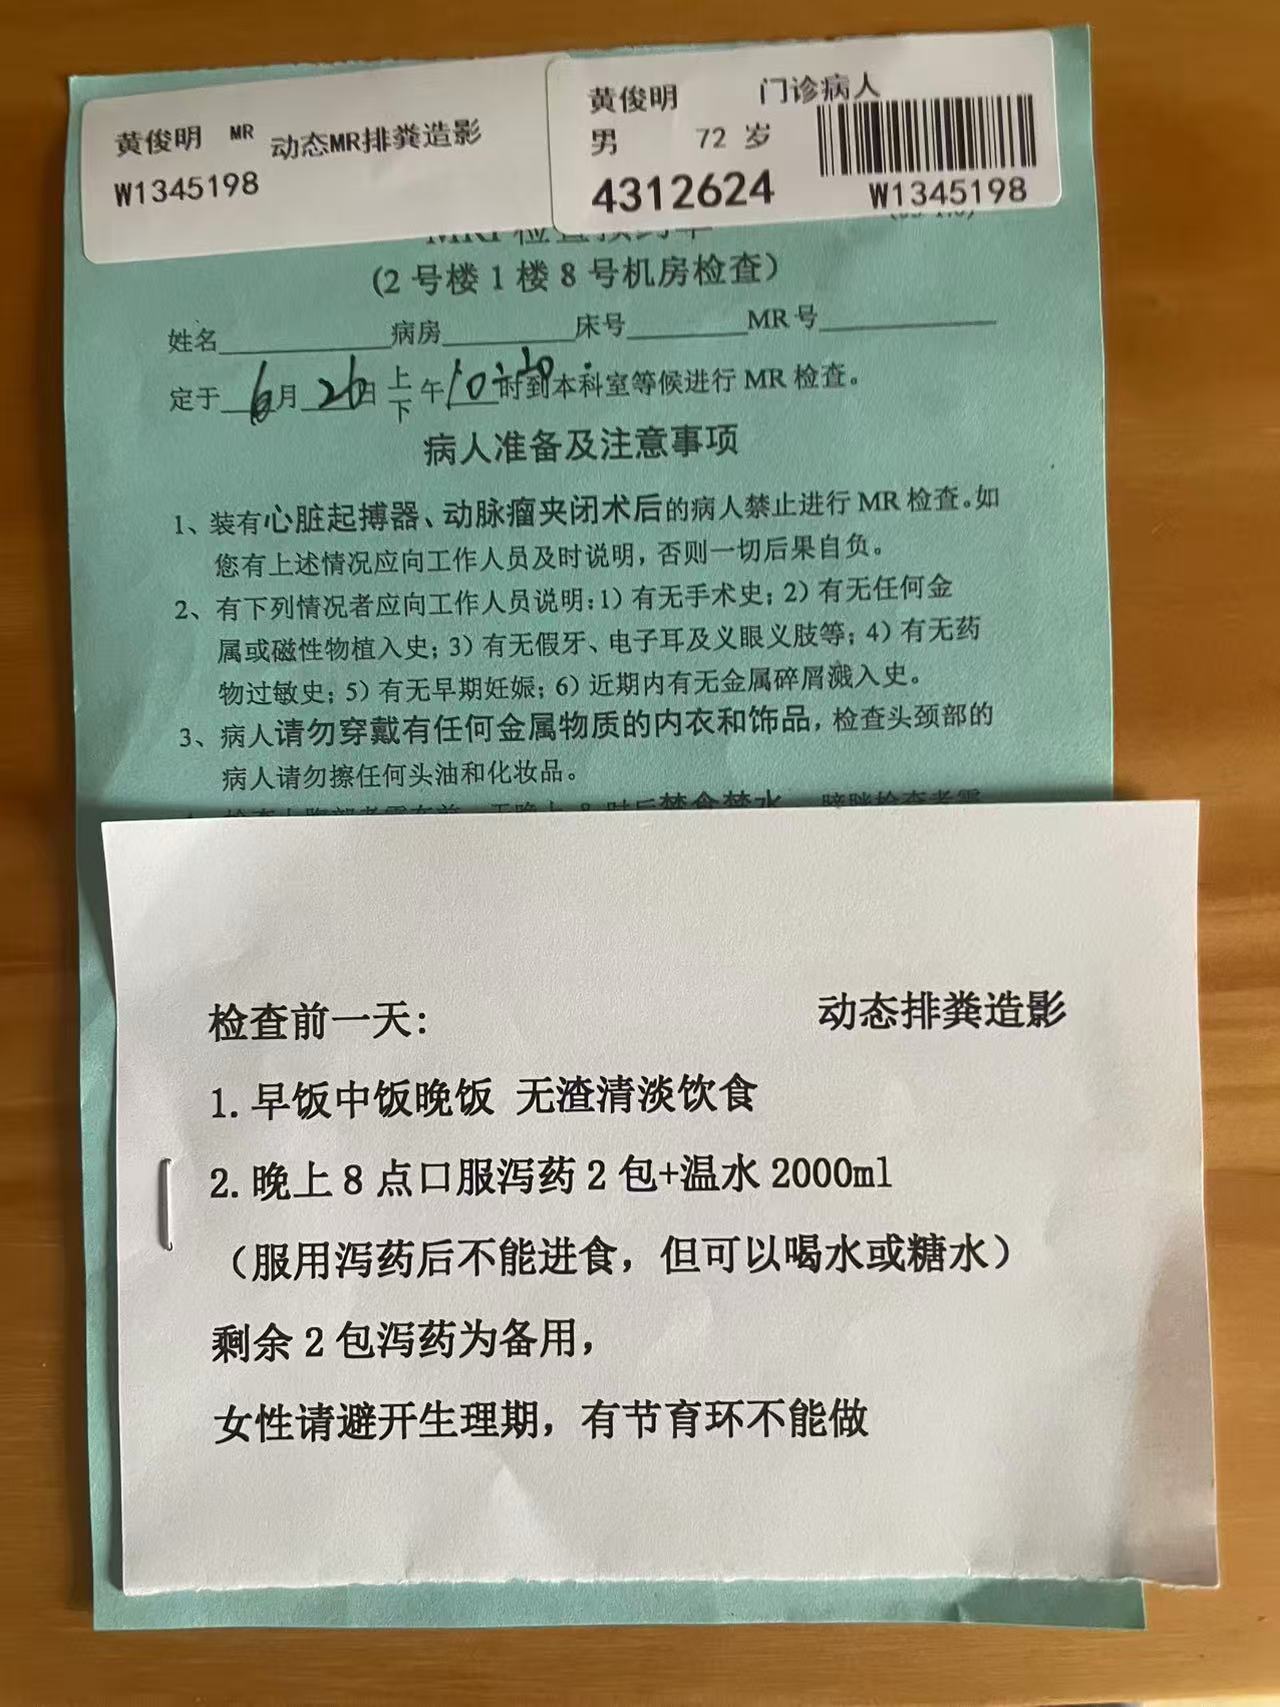 黄俊明 MR 动态MR排粪造影
W1345198
黄俊明 门诊病人
男 72 岁
4312624 W1345198
(2 号楼 1 楼 8 号机房检查)
姓名 病房 床号 MR 号
定于 6 月 26 日 上下 午 10:20 时到本科室等候进行 MR 检查。
病人准备及注意事项
1、装有心脏起搏器、动脉瘤夹闭术后的病人禁止进行 MR 检查。如
您有上述情况应向工作人员及时说明，否则一切后果自负。
2、有下列情况者应向工作人员说明：1）有无手术史；2）有无任何金
属或磁性物植入史；3）有无假牙、电子耳及义眼义肢等；4）有无药
物过敏史；5）有无早期妊娠；6）近期内有无金属碎屑溅入史。
3、病人请勿穿戴有任何金属物质的内衣和饰品，检查头颈部的
病人请勿擦任何头油和化妆品。
检查前一天： 动态排粪造影
1. 早饭中饭晚饭 无渣清淡饮食
2. 晚上 8 点口服泻药 2 包+温水 2000ml
（服用泻药后不能进食，但可以喝水或糖水）
剩余 2 包泻药为备用，
女性请避开生理期，有节育环不能做